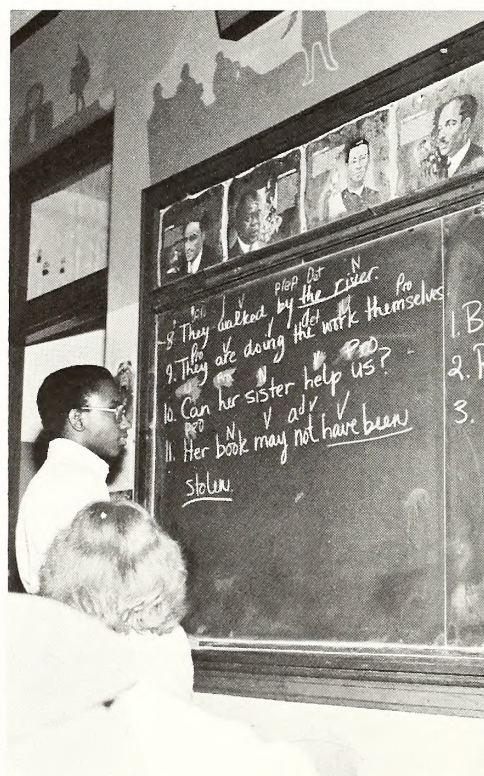 Prep Det N
8. They walked by the river.
Pro V V Det Pro
9. They are doing the work themselves
N Pro
10. Can her sister help us?
Pro N V adv V
11. Her book may not have been
stolen.
1. B
2.
3.